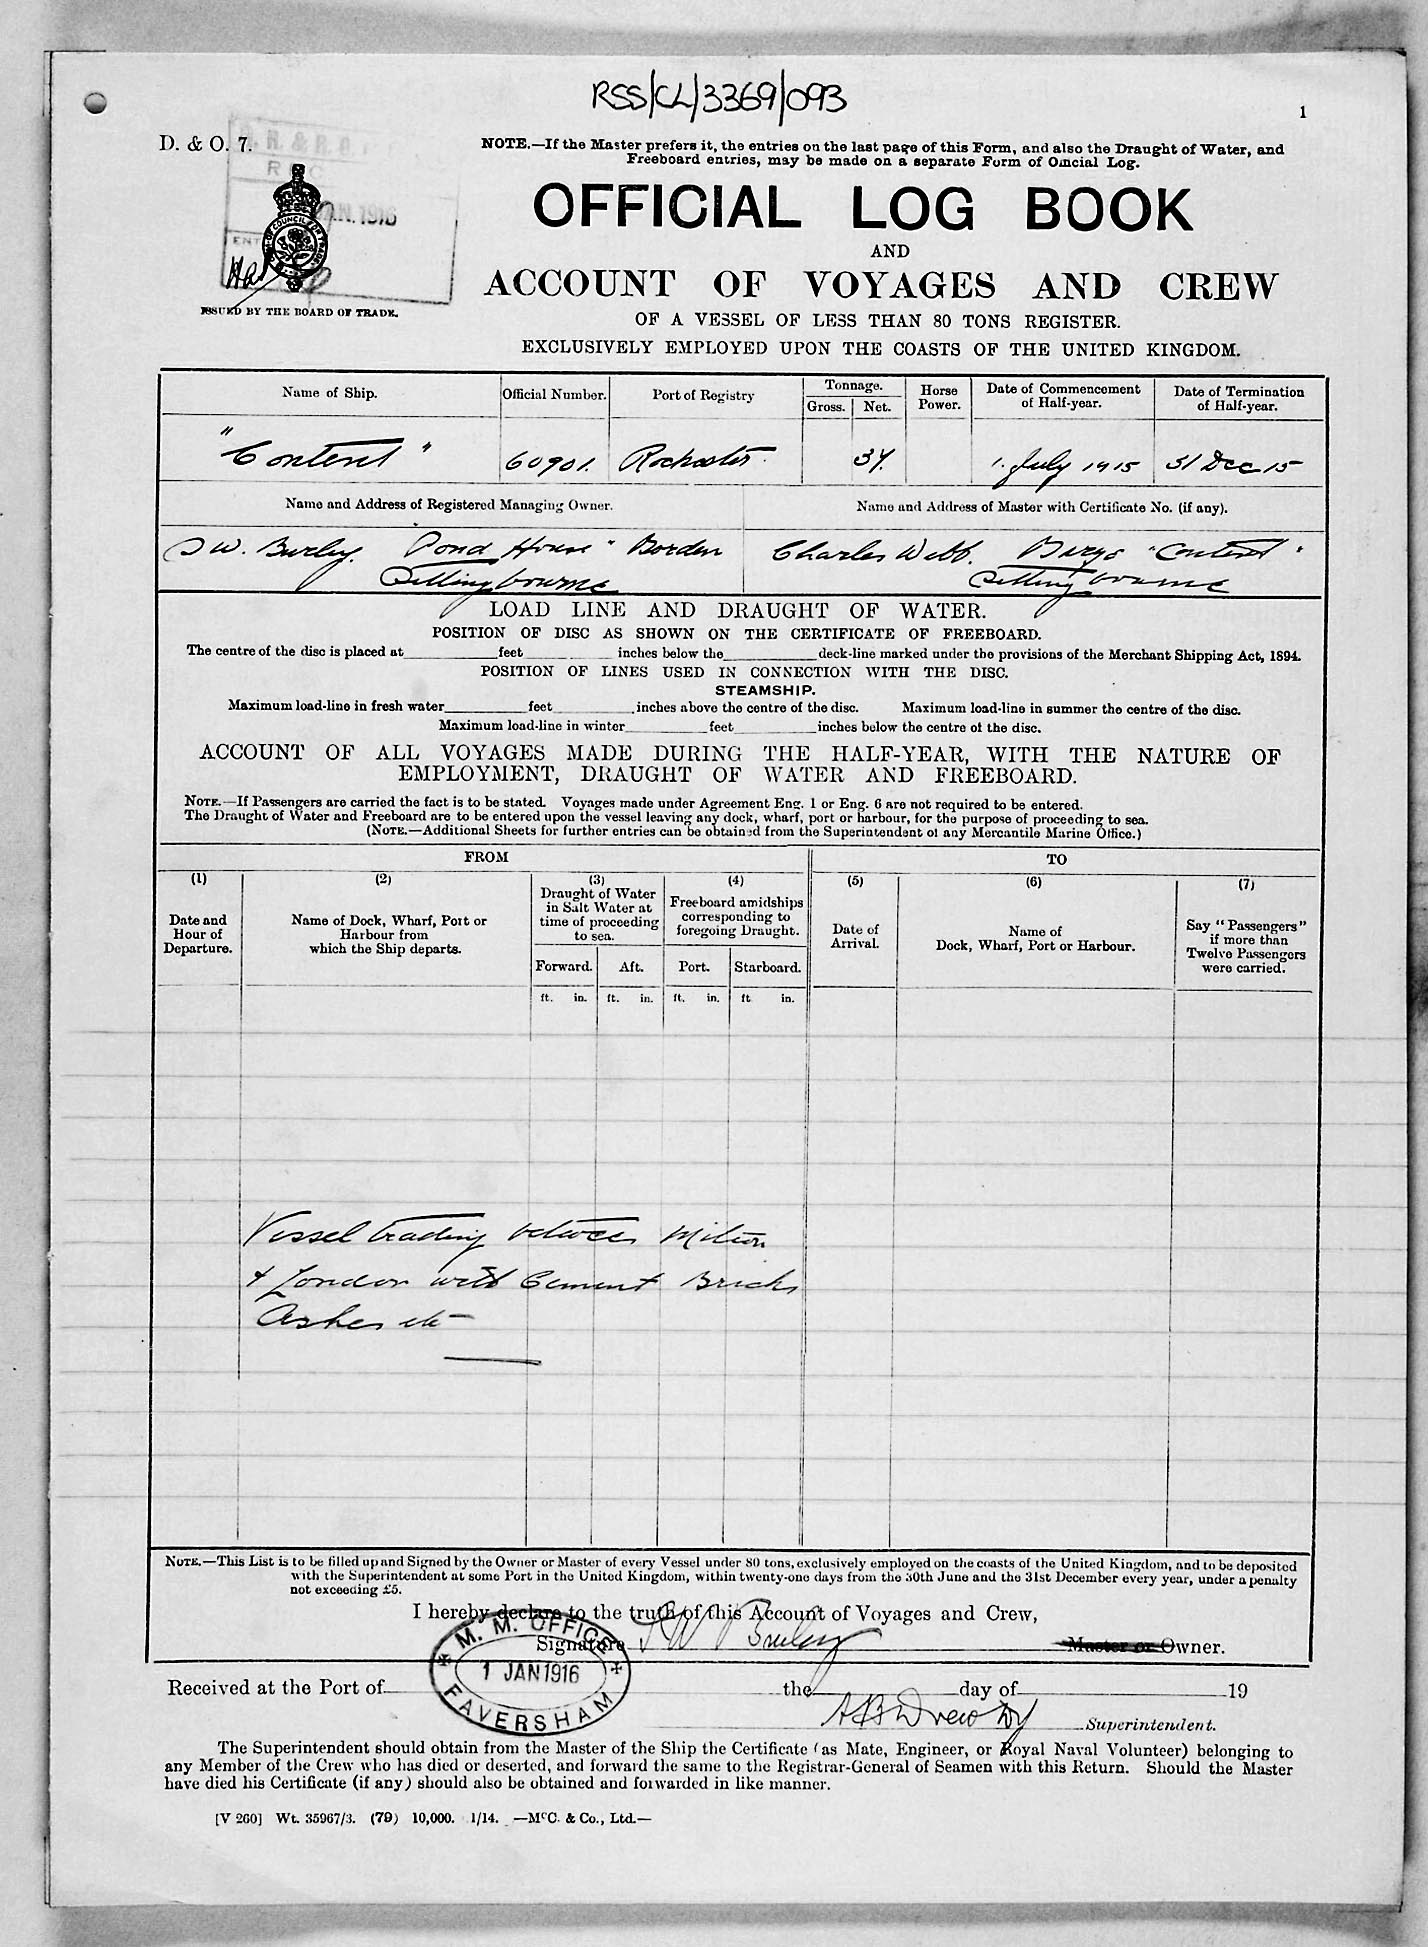 RSS/CL/3369/093
1
D. & O. 7.
NOTE.—If the Master prefers it, the entries on the last page of this Form, and also the Draught of Water, and
Freeboard entries, may be made on a separate Form of Official Log.
JAN. 1916
OFFICIAL LOG BOOK
AND
ACCOUNT OF VOYAGES AND CREW
ISSUED BY THE BOARD OF TRADE.
OF A VESSEL OF LESS THAN 80 TONS REGISTER.
EXCLUSIVELY EMPLOYED UPON THE COASTS OF THE UNITED KINGDOM.
Name of Ship. Official Number. Port of Registry Tonnage. Gross. Net. Horse Power. Date of Commencement of Half-year. Date of Termination of Half-year.
"Content" 60901. Rochester. 34. 1. July 1915 31 Dec 15
Name and Address of Registered Managing Owner. Name and Address of Master with Certificate No. (if any).
S W. Burley. "Pond House" Borden Charles Webb. Barge "Content"
Sittingbourne Sittingbourne
LOAD LINE AND DRAUGHT OF WATER.
POSITION OF DISC AS SHOWN ON THE CERTIFICATE OF FREEBOARD.
The centre of the disc is placed at feet inches below the deck-line marked under the provisions of the Merchant Shipping Act, 1894.
POSITION OF LINES USED IN CONNECTION WITH THE DISC.
STEAMSHIP.
Maximum load-line in fresh water feet inches above the centre of the disc. Maximum load-line in summer the centre of the disc.
Maximum load-line in winter feet inches below the centre of the disc.
ACCOUNT OF ALL VOYAGES MADE DURING THE HALF-YEAR, WITH THE NATURE OF
EMPLOYMENT, DRAUGHT OF WATER AND FREEBOARD.
NOTE.—If Passengers are carried the fact is to be stated. Voyages made under Agreement Eng. 1 or Eng. 6 are not required to be entered.
The Draught of Water and Freeboard are to be entered upon the vessel leaving any dock, wharf, port or harbour, for the purpose of proceeding to sea.
(NOTE.—Additional Sheets for further entries can be obtained from the Superintendent of any Mercantile Marine Office.)
FROM TO
(1) (2) (3) (4) (5) (6) (7)
Date and Hour of Departure.
Name of Dock, Wharf, Port or Harbour from which the Ship departs.
Draught of Water in Salt Water at time of proceeding to sea.
Freeboard amidships corresponding to foregoing Draught.
Date of Arrival.
Name of Dock, Wharf, Port or Harbour.
Say "Passengers" if more than Twelve Passengers were carried.
Forward. Aft. Port. Starboard.
ft. in. ft. in. ft. in. ft in.
Vessel trading between Milton
& London with Cement Bricks
Ashes etc
NOTE.—This List is to be filled up and Signed by the Owner or Master of every Vessel under 80 tons, exclusively employed on the coasts of the United Kingdom, and to be deposited
with the Superintendent at some Port in the United Kingdom, within twenty-one days from the 30th June and the 31st December every year, under a penalty
not exceeding £5.
I hereby declare to the truth of this Account of Voyages and Crew,
Signature S W Burley Master or Owner.
M. M. OFFICE
1 JAN 1916
FAVERSHAM
Received at the Port of the day of 19
A B Drew Dy Superintendent.
The Superintendent should obtain from the Master of the Ship the Certificate (as Mate, Engineer, or Royal Naval Volunteer) belonging to
any Member of the Crew who has died or deserted, and forward the same to the Registrar-General of Seamen with this Return. Should the Master
have died his Certificate (if any) should also be obtained and forwarded in like manner.
[V 260] Wt. 35967/3. (79) 10,000. 1/14. —McC. & Co., Ltd.—